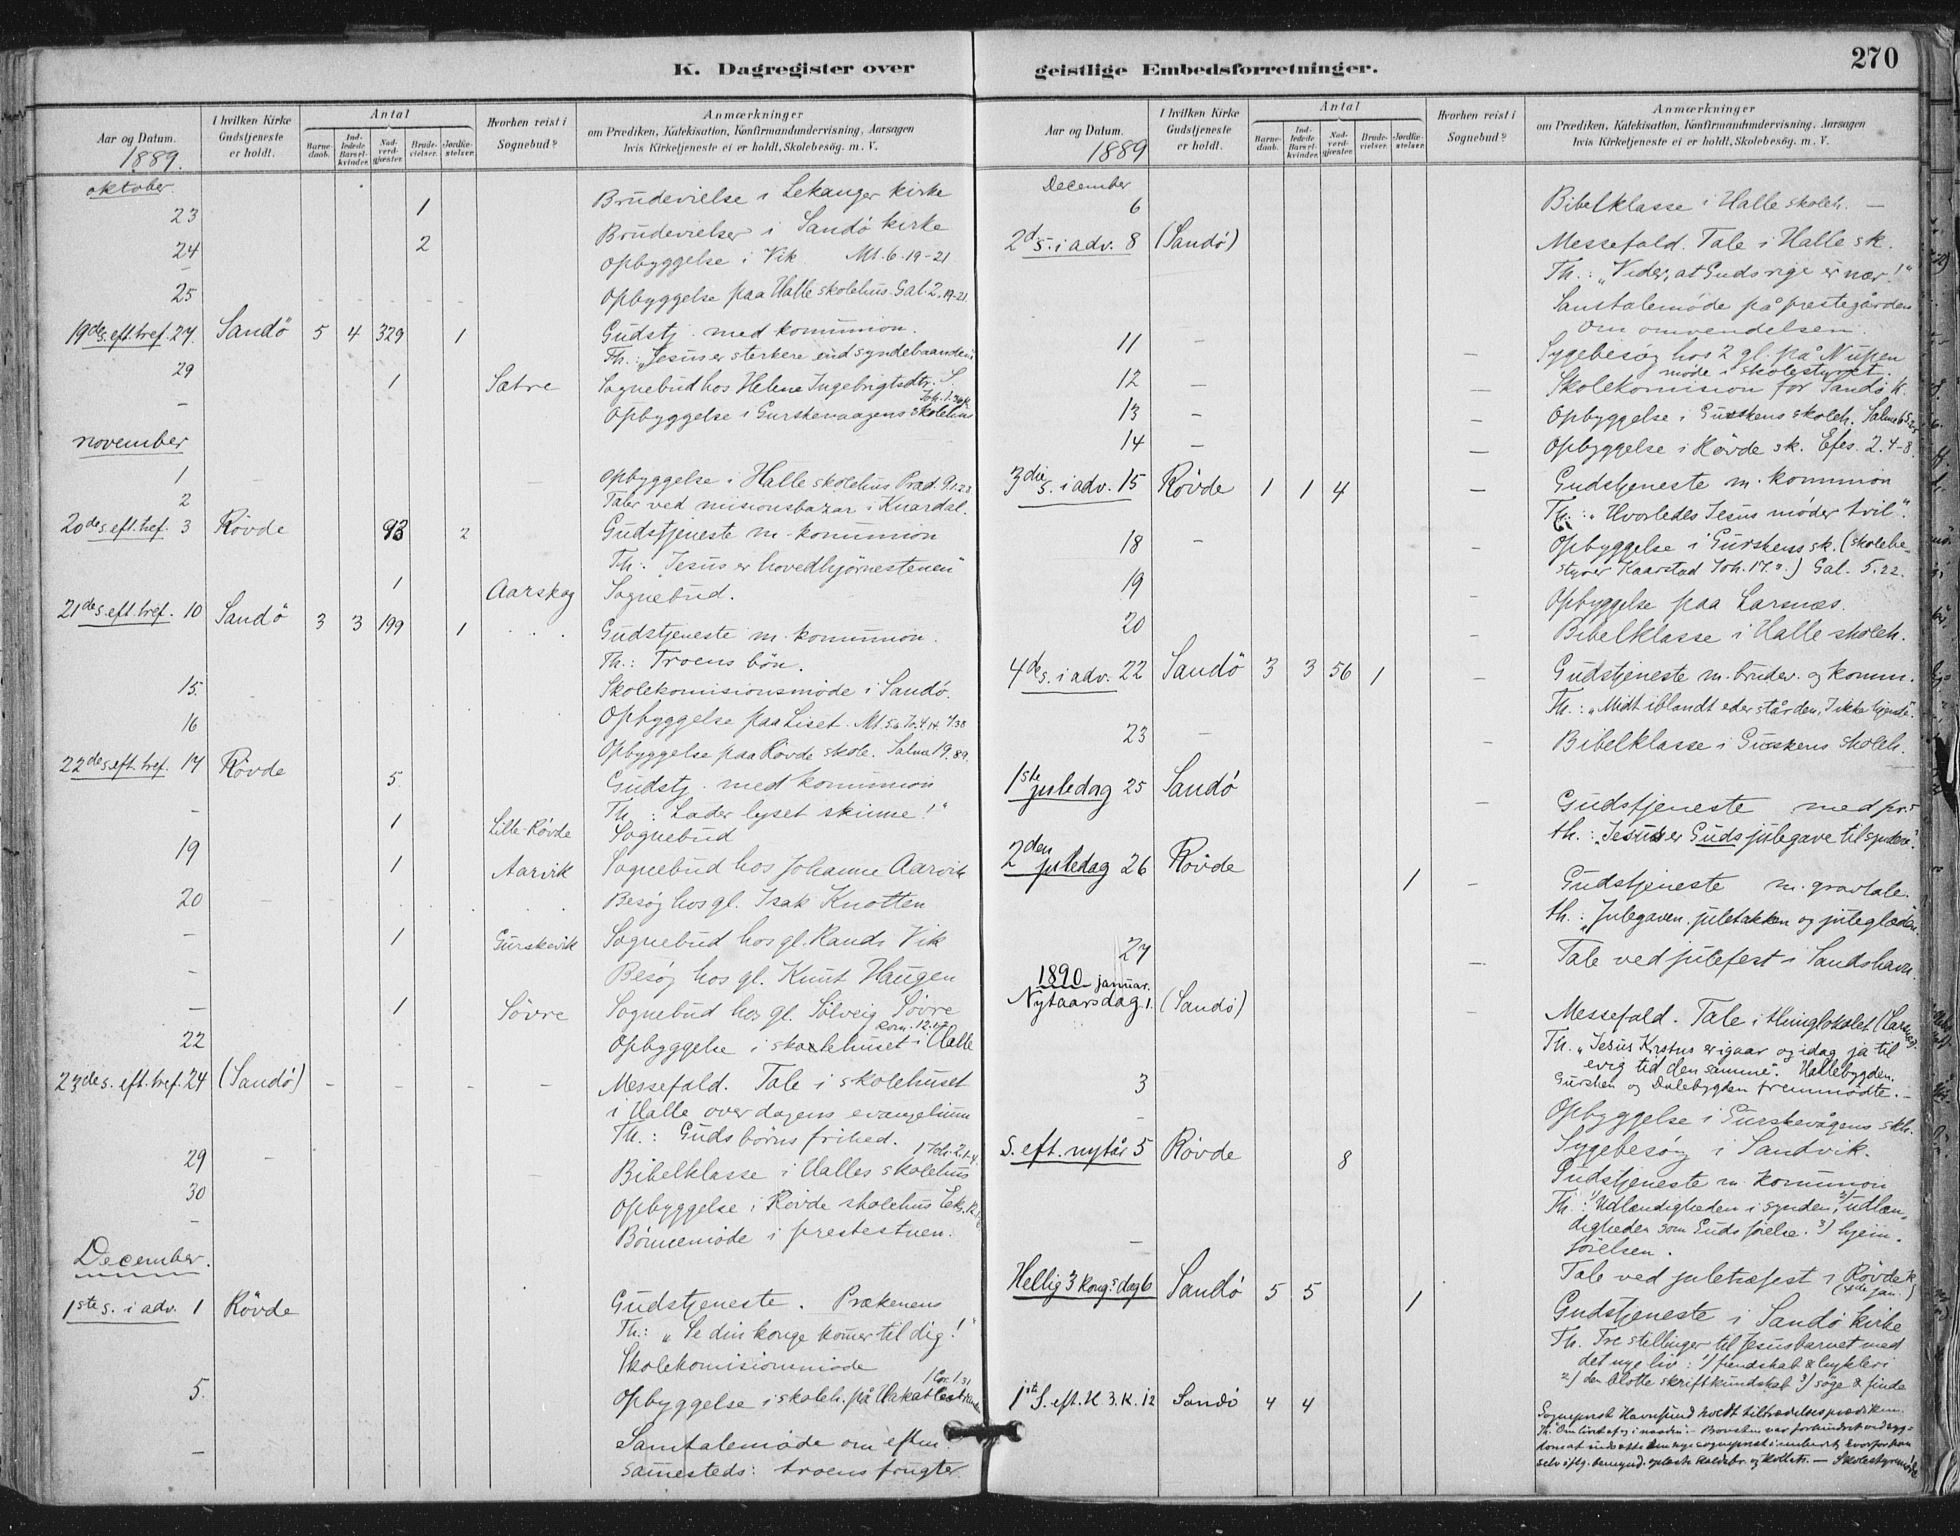 K. Dagregister over
Aar og Datum.
1889.
I hvilken Kirke Gudstjeneste er holdt.
Antal
Barnedaab.
Indledede Barselkvinder.
Nadverdgjester.
Brudevielser.
Jordfæstelser.
Hvorhen reist i Sognebud?
Anmærkninger
om Prædiken, Katekisation, Konfirmandundervisning, Aarsagen
hvis Kirketjeneste ei er holdt, Skolebesög. m. V.
oktober.
23 1 Brudevielse i Lekanger kirke
24 2 Brudevielser i Sandö kirke
Opbyggelse i Vik Mt. 6.19-21
25 Opbyggelse paa Halle skolehus. Gal. 2.19-21
19de s. eft. tref. 27 Sandö 5 4 329 1 Gudstj. med komunion.
Th.: Jesus er sterkere end
29 1 Sætre Sognebud hos Helene Ingebrigtsdtr. S.
- Opbyggelse i Gurskevaagens skolehus
november
1 Opbyggelse i Halle skolehus Præd. 9.1.
2 Taler ved misionsbazar i Knardal.
20de s. eft. tref. 3 Rövde 93 2 Gudstjeneste m. komunion
Th. "Jesus er hovedhjørnestenen"
1 Aarskog Sognebud.
21de s. eft. tref. 10 Sandö 3 3 199 1 Gudstjeneste m. komunion.
Th.: Troens bön.
15 Skolekomisionsmöde i Sandö.
16 Opbyggelse paa Liset.
Opbyggelse paa Rövde skole. Salme 19.
22de s. eft. tref. 17 Rövde 5 Gudstj. med komunion
Th.: Lader lyset skinne!"
- 1 Lille-Rövde Sognebud
19 1 Aarvik Sognebud hos Johanne Aarvik
20 Besög hos gl. Isak Knotten
- 1 Gurskevik Sognebud hos gl. Rands Vik
- Besög hos gl. Knut Haugen
- 1 Sövre Sognebud hos gl. Sölveig Sövre
Rom. 12.
22 Opbyggelse i skolehuset i Halle
23de s. eft. tref. 24 (Sandö) Messefald. Tale i skolehuset
i Halle over dagens evangelium
Th.: Guds börns frihed.
1 Joh. 2.1-4.
29 Bibelklasse i Halles skolehus
30 Opbyggelse i Rövde skolehus
- Börnemöde i prestestuen.
December.
1ste s. i adv. 1 Rövde Gudstjeneste. Prækenens
Th: "Se din konge komer til dig!"
Skolekomisionsmöde
1 Cor. 1.31
5. Opbyggelse i skoleh. på
- Samtalemöde om eftm.
samesteds: troens frugter.
geistlige Embedsforretninger.
270
Aar og Datum.
1889
I hvilken Kirke Gudstjeneste er holdt.
Antal
Barnedaab.
Indledede Barselkvinder.
Nadverdgjester.
Brudevielser.
Jordfæstelser.
Hvorhen reist i Sognebud?
Anmærkninger
om Prædiken, Katekisation, Konfirmandundervisning, Aarsagen
hvis Kirketjeneste ei er holdt, Skolebesög. m. V.
December
6 Bibelklasse i Halle skoleh. -
2d s. i adv. 8 (Sandö) Messefald. Tale i Halle sk.
Th.: "Vider, at Guds rige er nær!"
Samtalemöde på prestegården
om omvendelsen.
11 - Sygebesög hos 2 gl. på Nupen
möde i skolestyret.
12 - Skolekomision for Sandö k.
13 - Opbyggelse i Gurskens skoleh. Salme
14 - Opbyggelse i Rövde sk. Efes. 2.4-8.
3die s. i adv. 15 Rövde 1 1 4 Gudstjeneste m. komunion
Th.: "Hvorledes Jesus möder tvil".
18 - Opbyggelse i Gurskens sk. (skolebestyrer Kaarstad Joh. 17.) Gal. 5.22.
19 Opbyggelse paa Larsnæs.
20 Bibelklasse i Halle skoleh.
4de s. i adv. 22 Sandö 3 3 56 1 Gudstjeneste m. brudev. og komm.
Th.: "Midt iblandt eder står den, I ikke kjende".
23 - Bibelklasse i Gurskens skoleh.
1ste juledag 25 Sandö Gudstjeneste med
th.: "Jesus er Guds julegave til syndere".
2den juledag 26 Rövde 1 Gudstjeneste m. gravtale.
th.: "Julegaven, juletakken og juleglæden.
27 Tale ved julefest i Sandshavn.
1890 januar.
Nytaarsdag 1. (Sandö) Messefald. Tale i thinglokalet (Larsnes).
Th. "Jesus Kristus er igaar og idag ja til
evig tid den samme". Hallebygden.
Gursken og Dalebygden fremmödte. -
3 Opbyggelse i Gurskevågens skh.
Sygebesög i Sandvik.
S. eft. nytår 5 Rövde 8 Gudstjeneste m. komunion
Th.: 1) Udlændigheden i synden, 2) udlændigheden som Guds förelse. 3) hjemförelsen.
- Tale ved juletræfest i Rövde k.
(4de jan.)
Hellig 3 kong.s dag 6 Sandö 5 5 1 Gudstjeneste i Sandö kirke
Th. Tre stillinger til Jesusbarnet med
det nye liv: 1) fiendskab & hykleri
2) den blotte skriftkundskab 3) söge & finde
1ste S. eft. H. 3. K. 12 Sandö 4 4 Sogneprest Havnsund holdt tiltrædelsesprædiken.